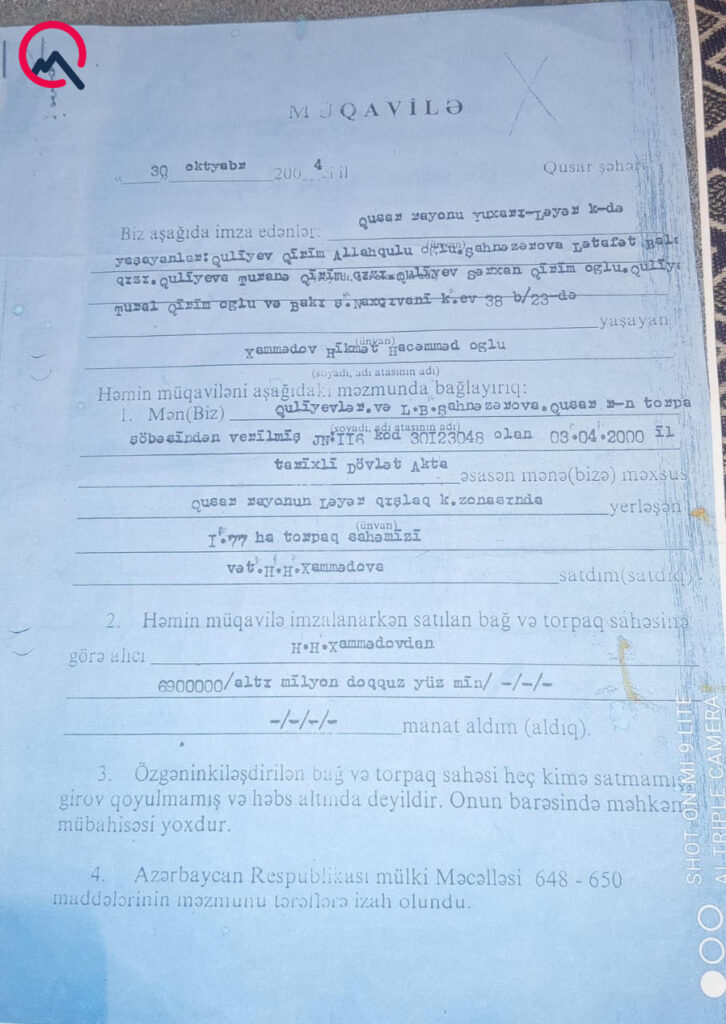 MÜQAVİLƏ
"__30__ oktyabr 2004-ci il Qusar şəhəri
Biz aşağıda imza edənlər: Qusar rayonu Yuxarı-Ləyər k-də
yaşayanlar:Quliyev Qīrīm Allahqulu oğlu.Şahnəzərova Lətafət Bala
qızı.Quliyeva Turanə Qīrīm qızı.Quliyev Sərxan Qīrīm oglu.Quliye
Tural Qīrīm oglu və Bakı ş.Naxçıvani k.ev 38 b/23-də
yaşayan
(ünvan)
Xammədov Hikmət Hacəmməd oglu
(soyadı, adı atasının adı)
Həmin müqaviləni aşağıdakı məzmunda bağlayırıq:
1. Mən(Biz) Quliyevlər.və L.B.Şahnəzərova.Qusar r-n torpa
(soyadı, adı atasının adı)
şöbəsindən verilmiş JN:II6 kod 30I23048 olan 03.04.2000 īl
tarixli Dövlət Aktə əsasən mənə(bizə) məxsus
Qusar rayonun Ləyər qışlaq k.zonasında yerləşən
(ünvan)
I.77 ha torpaq sahəmizi
vət.H.H.Xammədova satdım(satdıq)
2. Həmin müqavilə imzalanarkən satılan bağ və torpaq sahəsinə
görə alıcı H.H.Xammədovdan
6900000/altı milyon doqquz yüz min/ -/-/-
-/-/-/- manat aldım (aldıq).
3. Özgəninkiləşdirilən bağ və torpaq sahəsi heç kimə satmamış
girov qoyulmamış və həbs altında deyildir. Onun barəsində məhkəm
mübahisəsi yoxdur.
4. Azərbaycan Respublikası mülki Məcəlləsi 648 - 650
maddələrinin məzmunu tərəflərə izah olundu.
SHOT ON MI 9 LITE
AI TRIPLE CAMERA